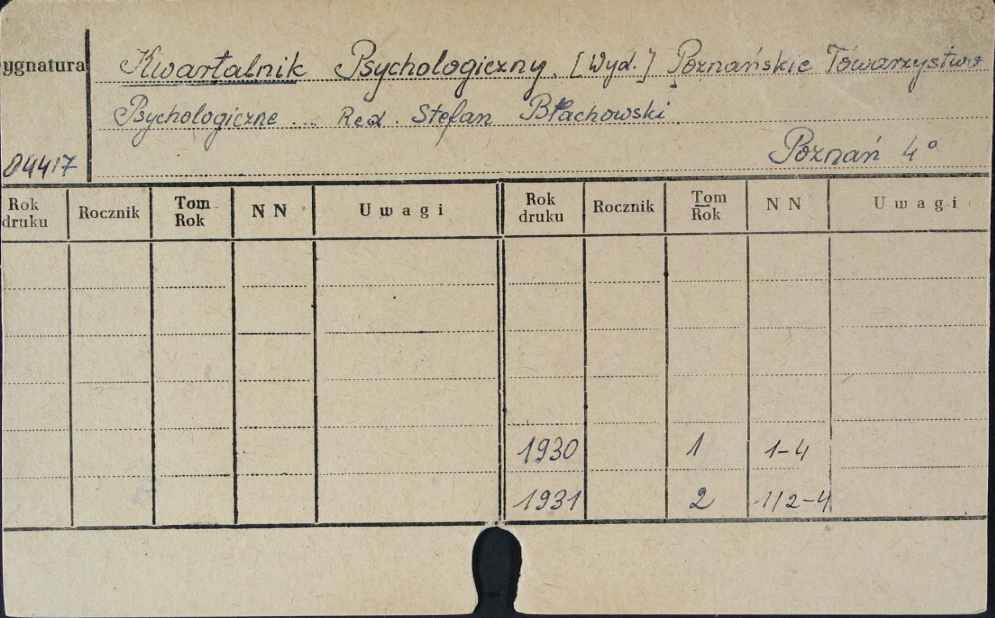 ygnatura
Kwartalnik Psychologiczny. [Wyd.] Poznańskie Towarzystwo
Psychologiczne ... Red. Stefan Błachowski.
Poznań 4°
04417
Rok druku Rocznik Tom Rok N N Uwagi Rok druku Rocznik Tom Rok N N Uwagi
1930 1 1-4
1931 2 1/2-4